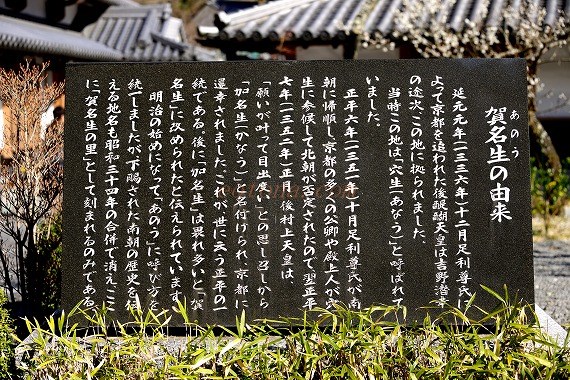 あのう
賀名生の由来
延元元年(一三三六年)十二月足利尊氏に
よって京都を追われた後醍醐天皇は吉野潜幸
の途次、この地に拠られました。
当時この地は「穴生(あなう)」と呼ばれて
いました。
正平六年(一三五一年)十月足利尊氏が南
朝に帰順し、京都の多くの公卿や殿上人が穴
生に参候して北朝が否定されたので翌正平
七年(一三五二年)正月、後村上天皇は、
「願いが叶って目出度い」との思し召しから
「加名生(かなう)」と名付けられ、京都に
還幸されました。これが世に云う正平の一
統である。後に「加名生」は畏れ多いと「賀
名生」に改められたと伝えられています。
明治の始めになって「あのう」に呼び方を
統一しましたが、下賜された南朝の歴史を伝
える地名も昭和三十四年の合併で消え、ここ
に「賀名生の里」として刻まれるのみである。